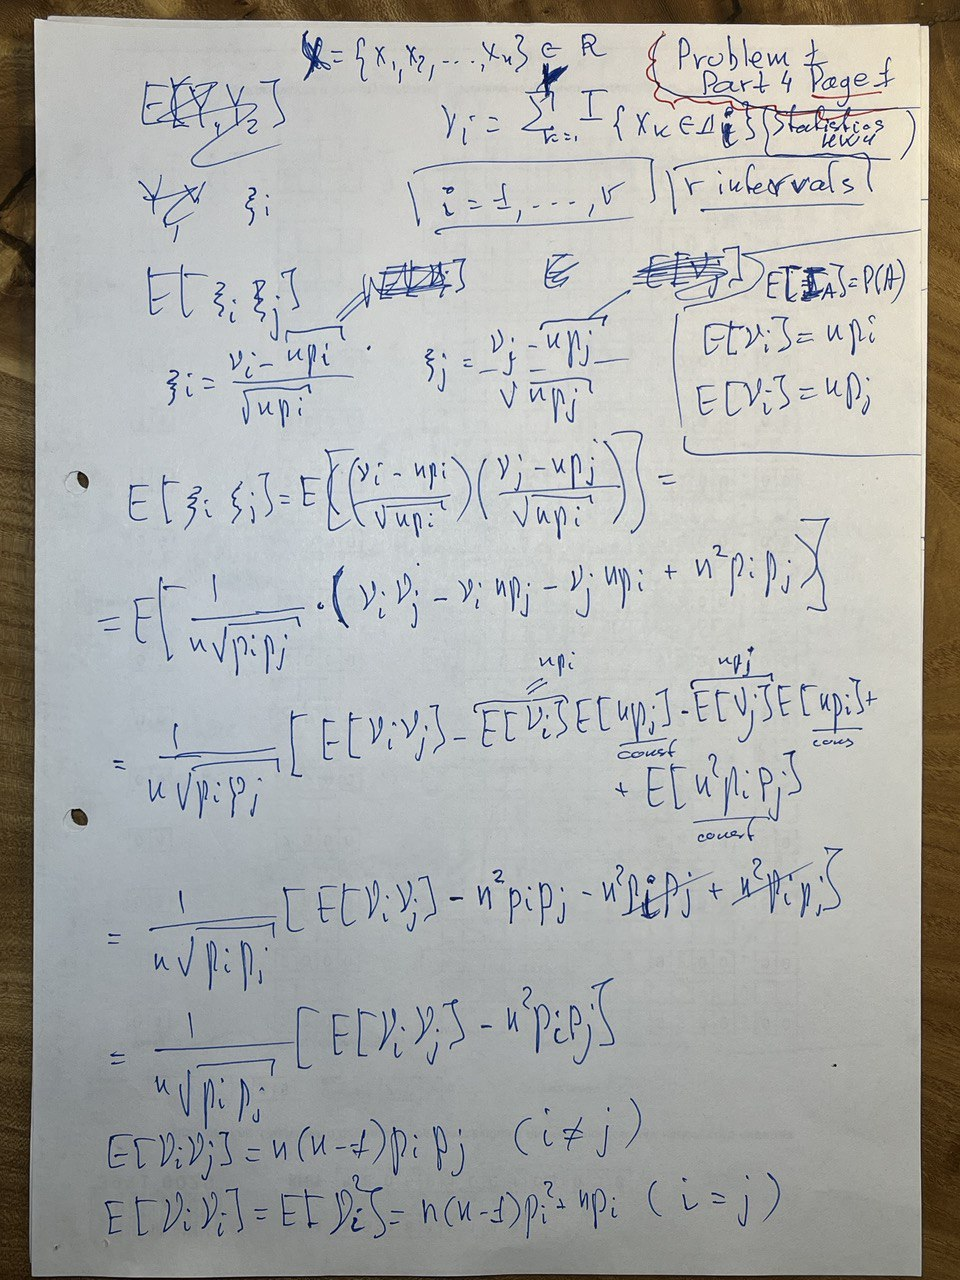 X = {x₁, x₂, ..., xₙ} ∈ ℝ
Problem 1
Part 4 Page 1
E[Y₁Y₂]
νᵢ = Σₖ₌₁ⁿ I {xₖ ∈ Δᵢ}
Statistics HW4
ξᵢ
i = 1, ..., r
r intervals
E[ξᵢ ξⱼ]
E
E[I_A] = P(A)
ξᵢ = (νᵢ - npᵢ)/√(npᵢ) .
ξⱼ = (νⱼ - npⱼ)/√(npⱼ)
E[νᵢ] = npᵢ
E[νᵢ] = npⱼ
E[ξᵢ ξⱼ] = E[((νᵢ - npᵢ)/√(npᵢ)) ((νⱼ - npⱼ)/√(npᵢ))] =
= E[1/(n√(pᵢpⱼ)) · (νᵢνⱼ - νᵢnpⱼ - νⱼnpᵢ + n²pᵢpⱼ)]
npᵢ npⱼ
= 1/(n√(pᵢpⱼ)) [E[νᵢνⱼ] - E[νᵢ]E[npⱼ] - E[νⱼ]E[npᵢ] +
const cons
+ E[n²pᵢpⱼ]
const
= 1/(n√(pᵢpⱼ)) [E[νᵢνⱼ] - n²pᵢpⱼ - n²pᵢpⱼ + n²pᵢpⱼ]
= 1/(n√(pᵢpⱼ)) [E[νᵢνⱼ] - n²pᵢpⱼ]
E[νᵢνⱼ] = n(n-1)pᵢpⱼ (i ≠ j)
E[νᵢνᵢ] = E[νᵢ²] = n(n-1)pᵢ² + npᵢ (i = j)